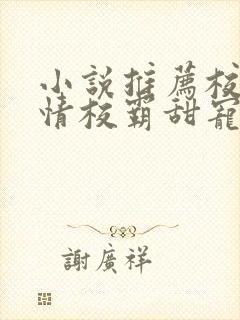 小說推薦校
情校霸甜寵
謝廣祥